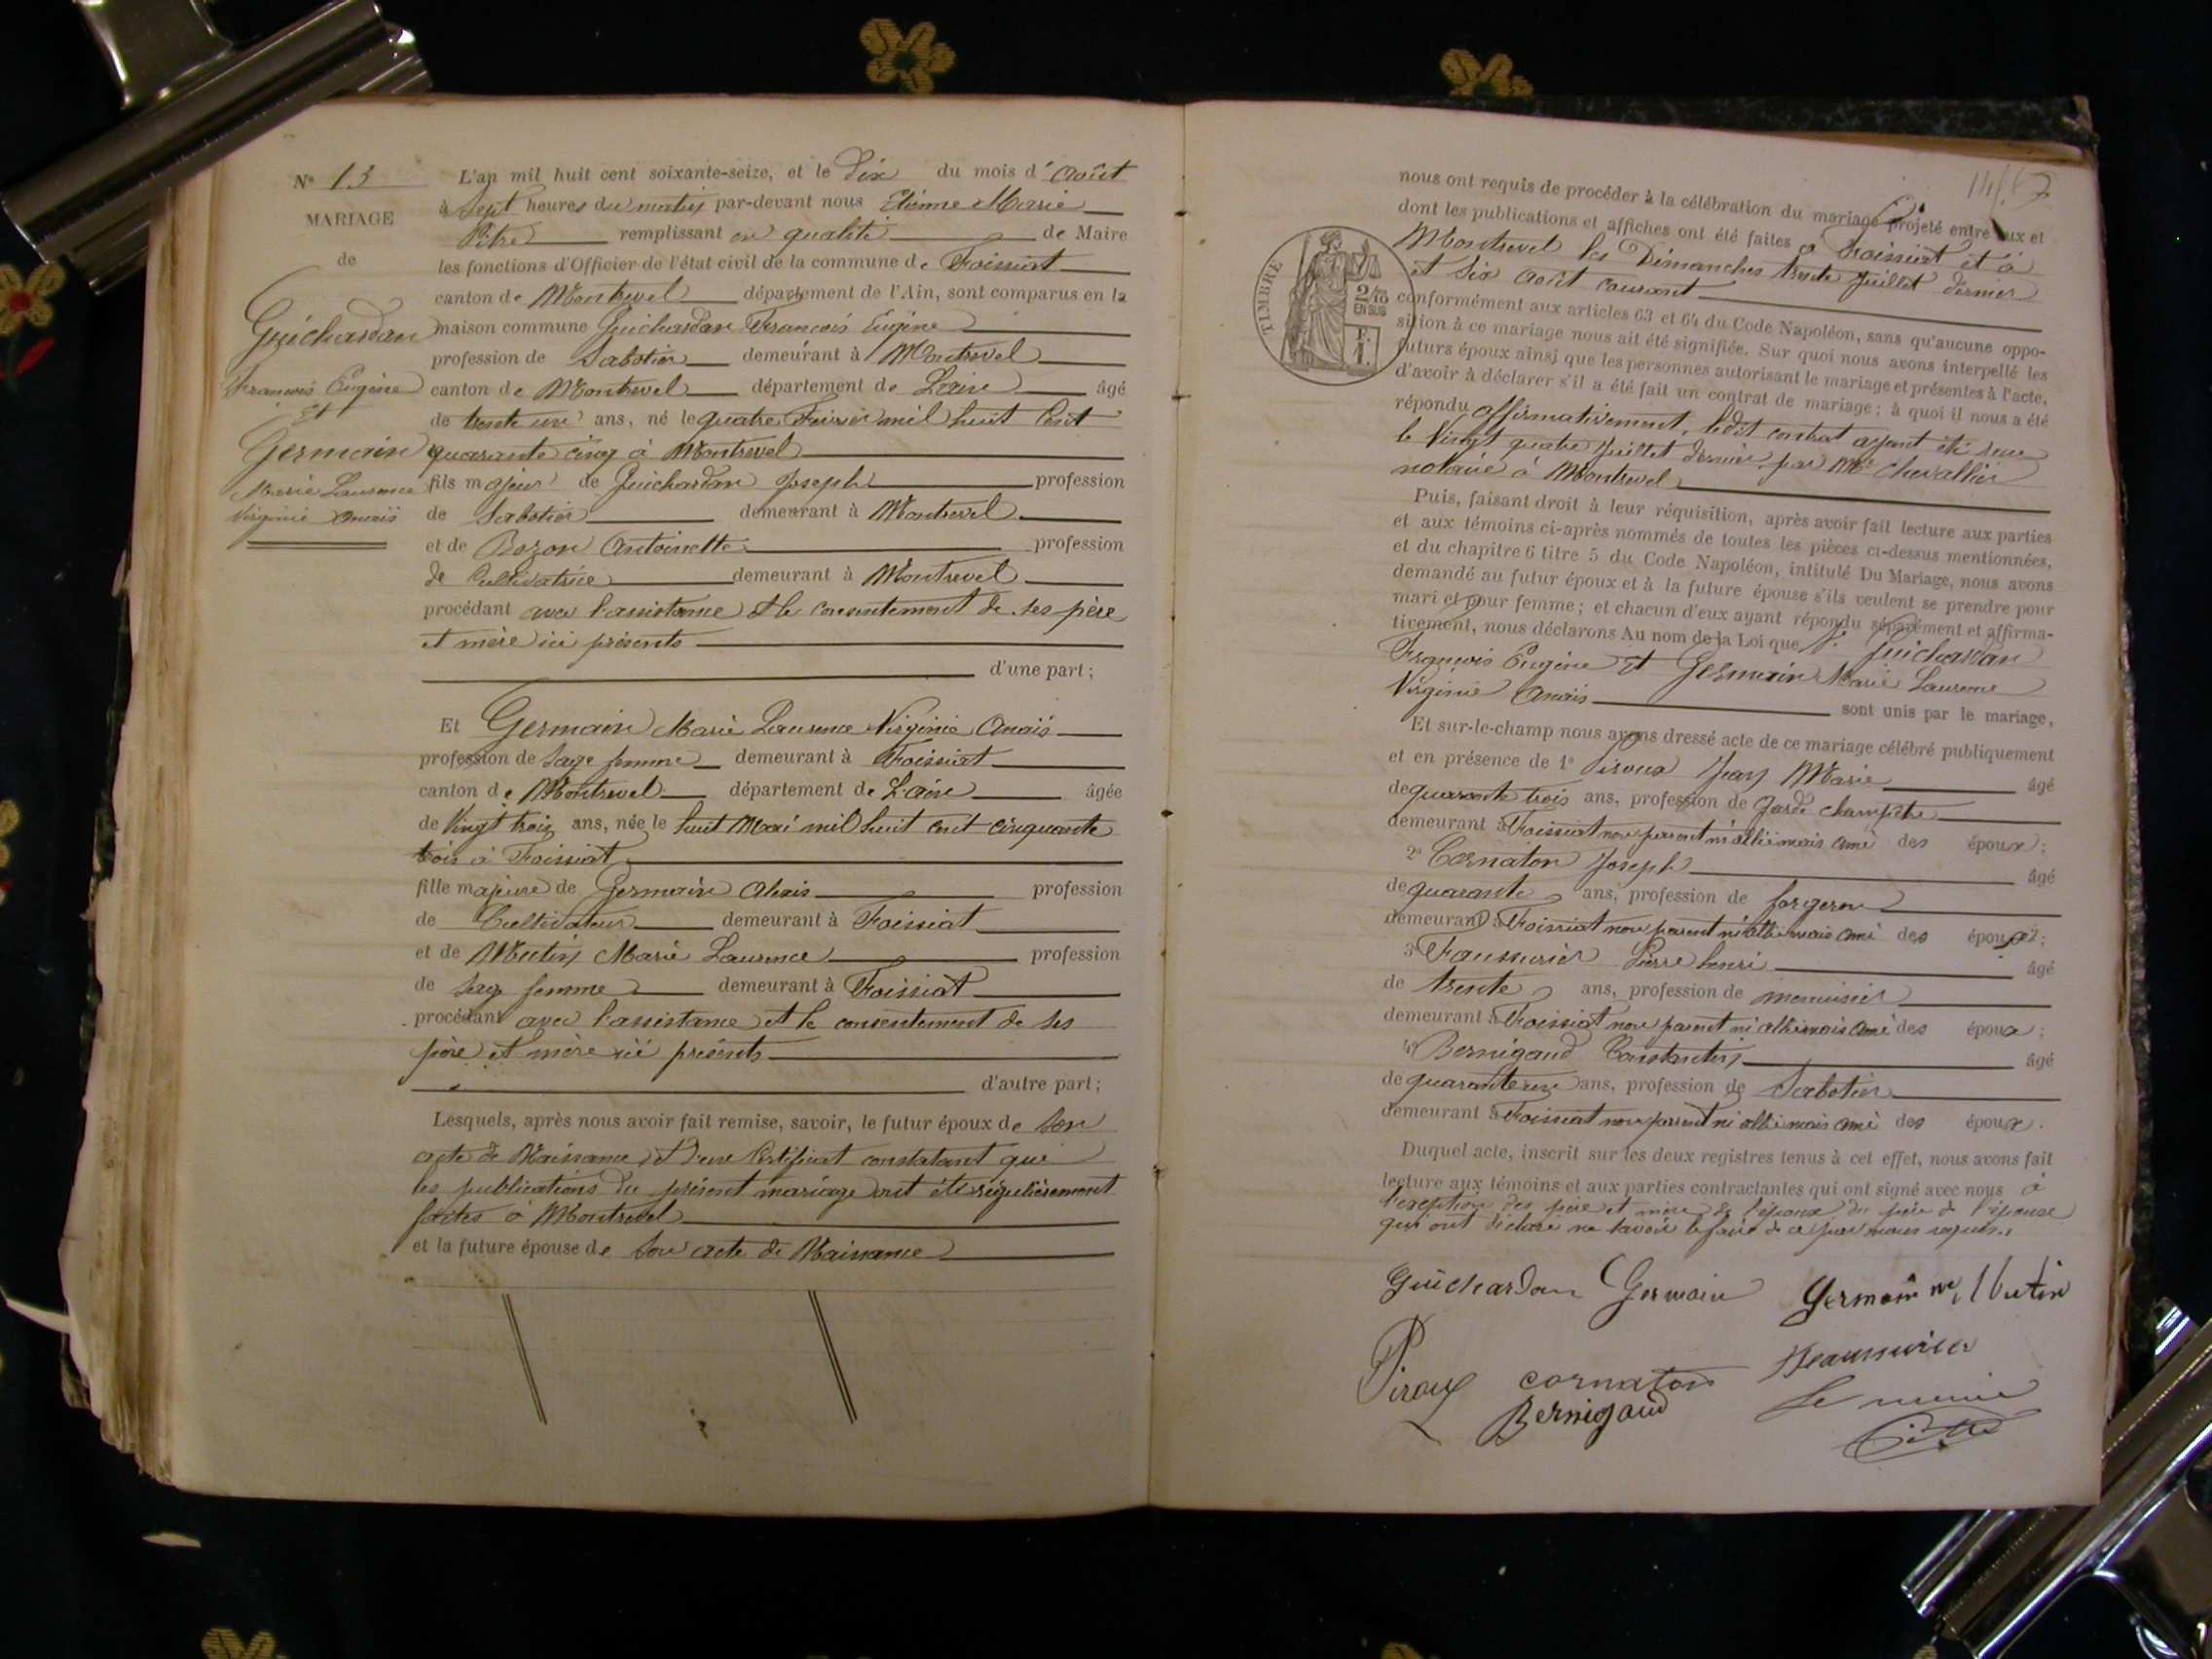 N° 13
MARIAGE
de
Guichardan
François Eugène
Et
Germain
Marie Laurence
Virginie Anaïs
L'an mil huit cent soixante-seize, et le Dix du mois d'Août
à Sept heures du matin par-devant nous Etienne Marie
Pitre remplissant en qualité de Maire
les fonctions d'Officier de l'état civil de la commune de Foissiat
canton de Montrevel département de l'Ain, sont comparus en la
maison commune Guichardan François Eugène
profession de Sabotier demeurant à Montrevel
canton de Montrevel département de L'ain âgé
de trente un ans, né le quatre Février mil huit Cent
quarante cinq à Montrevel
fils majeur de Guichardan Joseph profession
de Sabotier demeurant à Montrevel
et de Bozon Antoinette profession
de Cultivatrice demeurant à Montrevel
procédant avec l'assistance et le consentement de ses père
et mère ici présents
d'une part;
Et Germain Marie Laurence Virginie Anaïs
profession de Sage femme demeurant à Foissiat
canton de Montrevel département de L'ain âgée
de Vingt trois ans, née le huit Mai mil huit cent cinquante
trois à Foissiat
fille majeure de Germain Alexis profession
de Cultivateur demeurant à Foissiat
et de Mutin Marie Laurence profession
de Sage femme demeurant à Foissiat
procédant avec l'assistance et le consentement de ses
père et mère ici présents
d'autre part;
Lesquels, après nous avoir fait remise, savoir, le futur époux de son
acte de Naissance et d'un Certificat constatant que
les publications du présent mariage ont été régulièrement
faites à Montrevel
et la future épouse de son acte de Naissance
nous ont requis de procéder à la célébration du mariage projeté entre eux et
dont les publications et affiches ont été faites à Foissiat et à
Montrevel les Dimanches trente Juillet dernier
et Six Août courant
TIMBRE
2/10
EN SUS
conformément aux articles 63 et 64 du Code Napoléon, sans qu'aucune oppo-
sition à ce mariage nous ait été signifiée. Sur quoi nous avons interpellé les
futurs époux ainsi que les personnes autorisant le mariage et présentes à l'acte,
d'avoir à déclarer s'il a été fait un contrat de mariage; à quoi il nous a été
répondu affirmativement, ledit contrat ayant été reçu
le Vingt quatre Juillet dernier par Me Chevallier
notaire à Montrevel
Puis, faisant droit à leur réquisition, après avoir fait lecture aux parties
et aux témoins ci-après nommés de toutes les pièces ci-dessus mentionnées,
et du chapitre 6 titre 5 du Code Napoléon, intitulé Du Mariage, nous avons
demandé au futur époux et à la future épouse s'ils veulent se prendre pour
mari et pour femme; et chacun d'eux ayant répondu séparément et affirma-
tivement, nous déclarons Au nom de la Loi que Guichardan
François Eugène et Germain Marie Laurence
Virginie Anaïs sont unis par le mariage,
Et sur-le-champ nous avons dressé acte de ce mariage célébré publiquement
et en présence de 1° Piroux Jean Marie âgé
de quarante trois ans, profession de Garde champêtre
demeurant à Foissiat non parent ni allié mais ami des époux;
2° Cornaton Joseph âgé
de quarante ans, profession de forgeron
demeurant à Foissiat non parent ni allié mais ami des époux;
3° Faussurier Pierre henri âgé
de trente ans, profession de menuisier
demeurant à Foissiat non parent ni allié mais ami des époux;
4° Bernigaud Constantin âgé
de quarante un ans, profession de Sabotier
demeurant à Foissiat non parent ni allié mais ami des époux.
Duquel acte, inscrit sur les deux registres tenus à cet effet, nous avons fait
lecture aux témoins et aux parties contractantes qui ont signé avec nous à
l'exception des père et mère de l'époux du père de l'épouse
qui ont déclaré ne savoir le faire de ce par nous requis.
Guichardan Germain Germain né Mutin
Piroux cornaton
Bernigaud
Le maire
Pitre